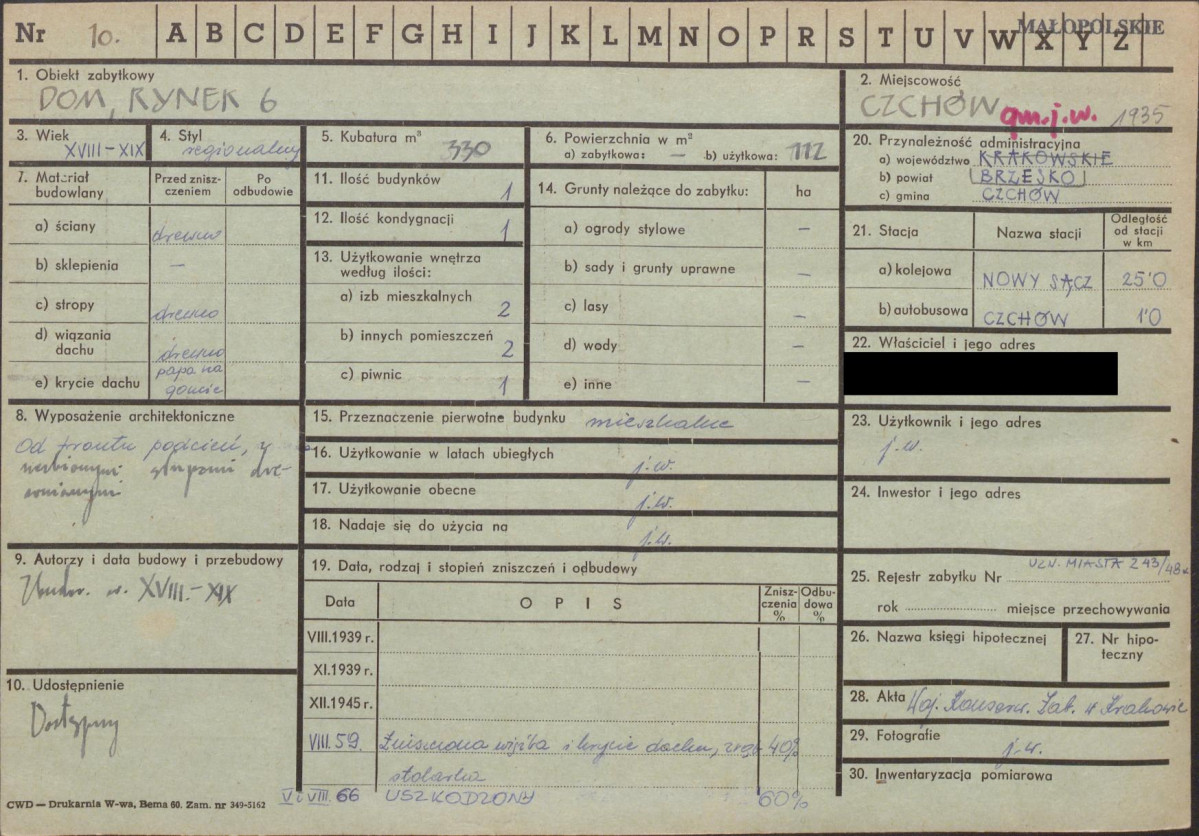 Nr 10. A B C D E F G H I J K L M N O P R S T U V W X Y Z MAŁOPOLSKIE
1. Obiekt zabytkowy
DOM, RYNEK 6
2. Miejscowość
CZCHÓW gm.j.w. 1935
3. Wiek
XVIII-XIX
4. Styl
regionalny
5. Kubatura m³
330
6. Powierzchnia w m²
a) zabytkowa: — b) użytkowa: 112
7. Materiał budowlany
Przed zniszczeniem
Po odbudowie
a) ściany drewno
b) sklepienia —
c) stropy drewno
d) wiązania dachu drewno
e) krycie dachu papa na goncie
8. Wyposażenie architektoniczne
Od frontu podcień, z
słupami dre-
wnianymi
9. Autorzy i data budowy i przebudowy
Zbudow. w. XVIII.-XIX
10. Udostępnienie
Dostępny
11. Ilość budynków 1
12. Ilość kondygnacji 1
13. Użytkowanie wnętrza
według ilości:
a) izb mieszkalnych 2
b) innych pomieszczeń 2
c) piwnic 1
14. Grunty należące do zabytku: ha
a) ogrody stylowe —
b) sady i grunty uprawne —
c) lasy —
d) wody —
e) inne —
15. Przeznaczenie pierwotne budynku mieszkalne
16. Użytkowanie w latach ubiegłych j.w.
17. Użytkowanie obecne j.w.
18. Nadaje się do użycia na j.w.
19. Data, rodzaj i stopień zniszczeń i odbudowy
Data OPIS Zniszczenia % Odbudowa %
VIII.1939 r.
XI.1939 r.
XII.1945 r.
VIII.59. Zniszczona więźba i krycie dachu, zrąb 40%
stolarka
V i VIII 66 USZKODZONY 60%
20. Przynależność administracyjna
a) województwo KRAKOWSKIE
b) powiat BRZESKO
c) gmina CZCHÓW
21. Stacja Nazwa stacji Odległość od stacji w km
a) kolejowa NOWY SĄCZ 25'0
b) autobusowa CZCHÓW 1'0
22. Właściciel i jego adres
23. Użytkownik i jego adres
j.w.
24. Inwestor i jego adres
25. Rejestr zabytku Nr UZN. MIASTA 243/48
rok miejsce przechowywania
26. Nazwa księgi hipotecznej
27. Nr hipoteczny
28. Akta Woj. Konserw. Zab. w Krakowie
29. Fotografie j.w.
30. Inwentaryzacja pomiarowa
CWD — Drukarnia W-wa, Bema 60. Zam. nr 349-5162